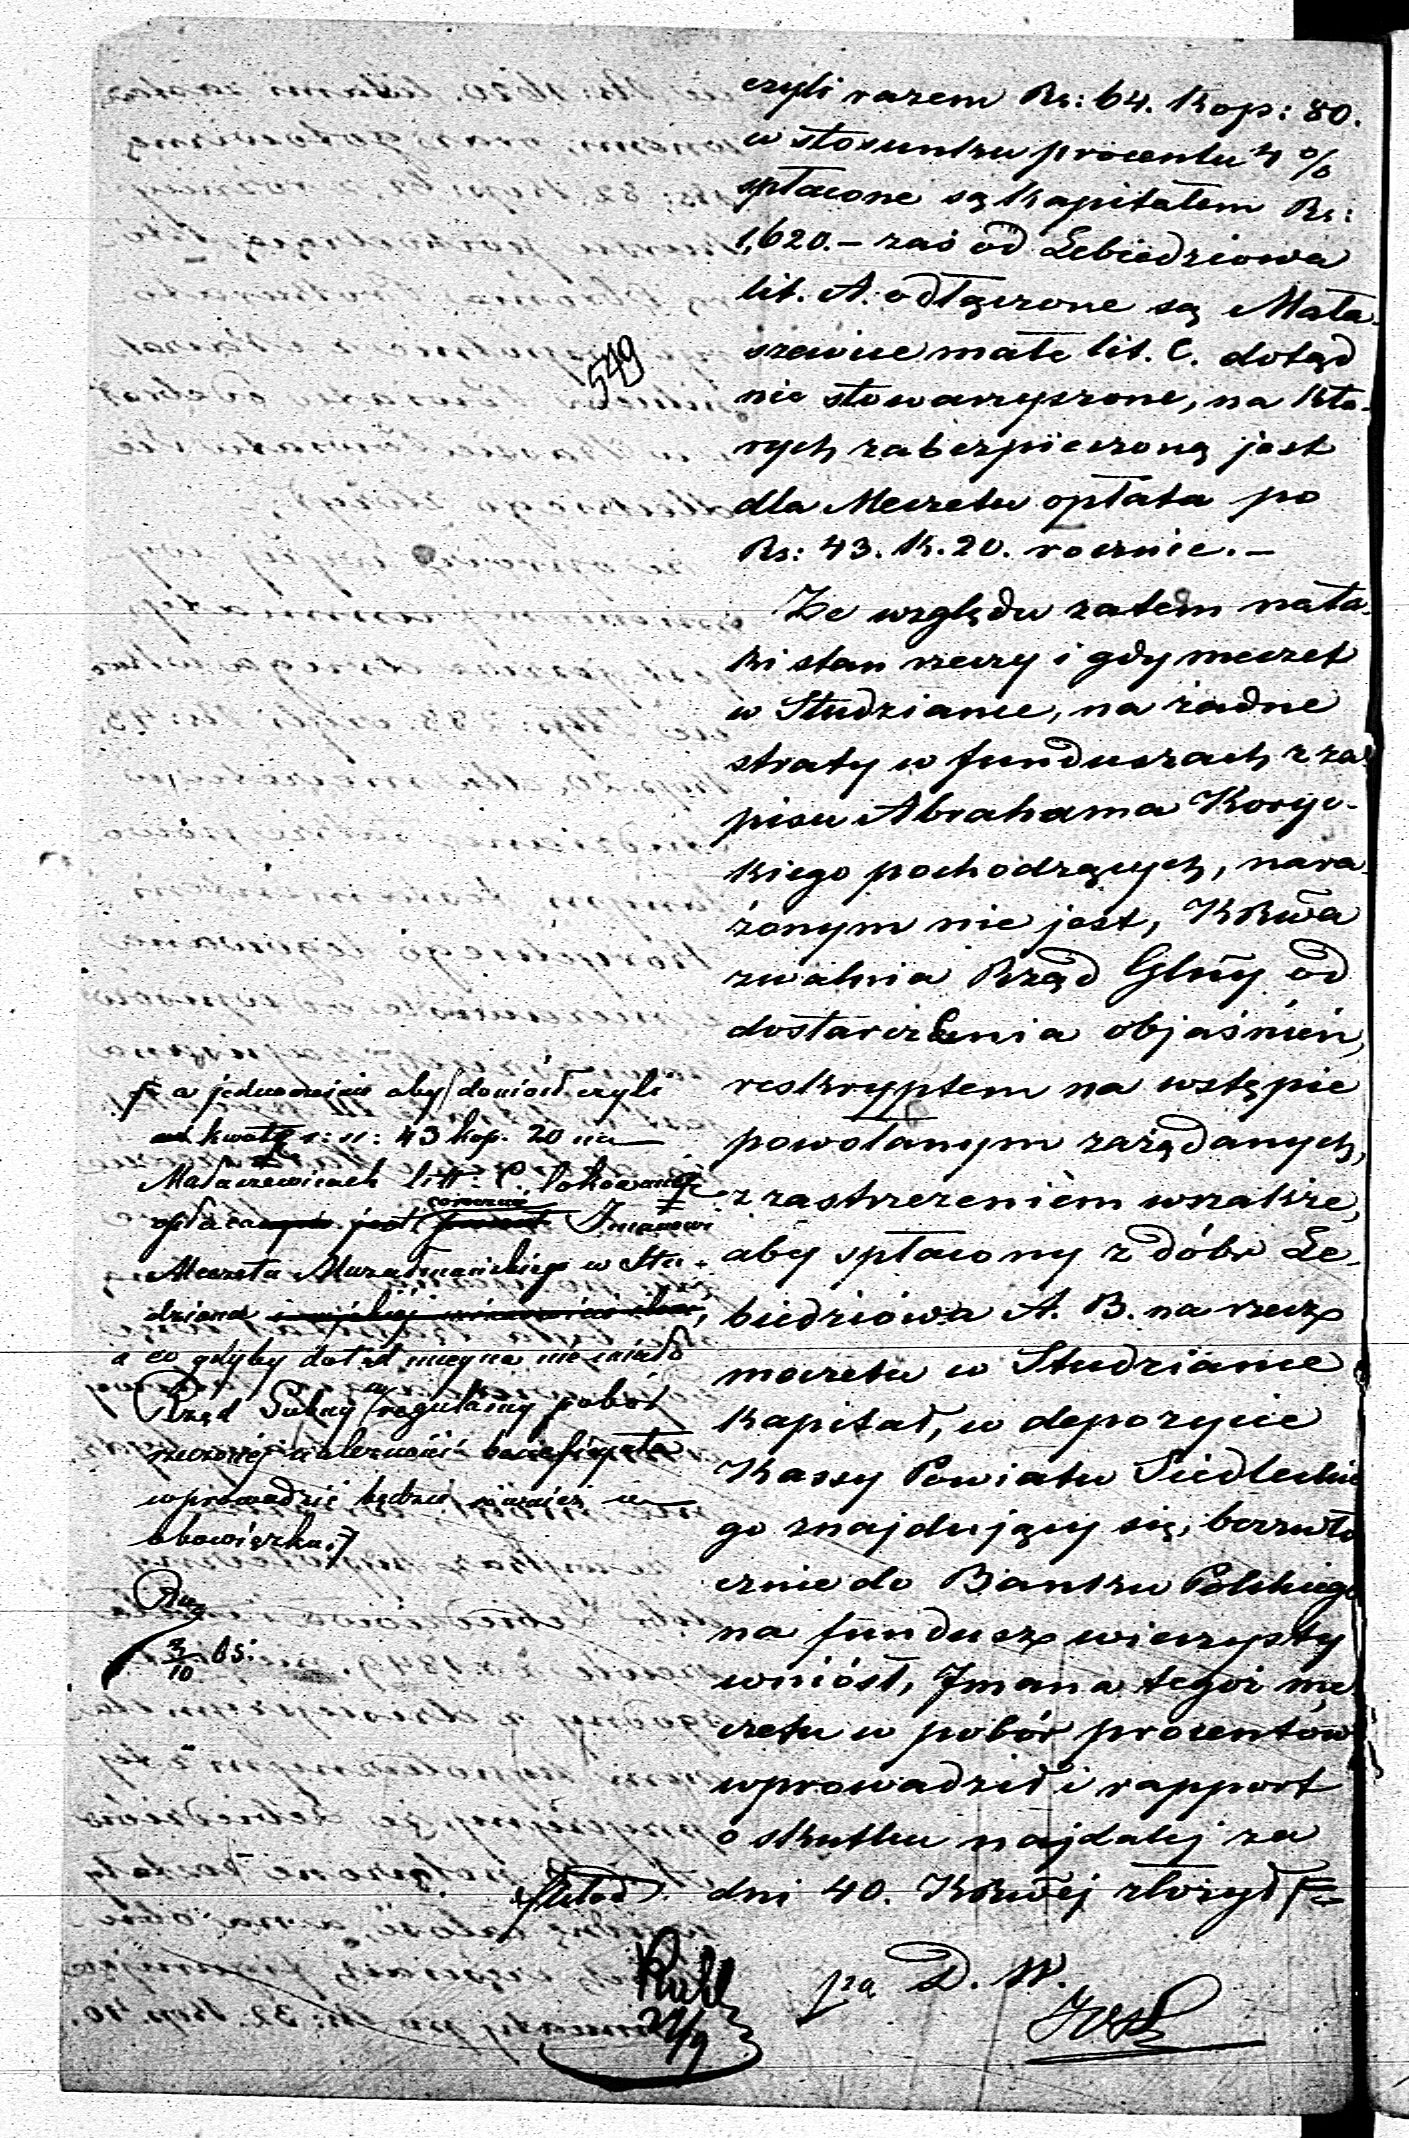 czyli razem Rs: 64. Kop: 80.
w stosunku procentu 4 %
spłacone są kapitałem Rs:
1,620.- zaś od Lebiedziowa
lit. A. odłączone są Mała-
szewice małe lit. C. dotąd
nie stowarzyszone, na któ-
rych zabezpieczoną jest
dla Meczetu opłata po
Rs: 43. K. 20. rocznie.-
549
Ze względu zatem na ta-
ki stan rzeczy i gdy meczet
w Studziance, na żadne
straty w funduszach z za-
pisu Abrahama Koryc-
kiego pochodzących, nara-
żonym nie jest, KRwa
zwalnia Rząd Glny od
dostarczenia objaśnień,
reskryptem na wstępie
powołanym zażądanych,
z zastrzeżeniem wszakże,
aby spłacony z dóbr Le-
biedziowa A. B. na rzecz
meczetu w Studziance
kapitał, w depozycie
Kassy Powiatu Siedleckie-
go znajdujący się, bezzwło-
cznie do Banku Polskiego
na fundusz wieczysty
wniósł, Imana tegoż me-
czetu w pobór procentów
wprowadził i rapport
o skutku najdalej za
dni 40. KRwej złożył
a jednocześnie aby doniósł czyli
kwota r: s: 43 kop. 20 na
Małaszewicach litt: C. lokowana
opłacaną jest corocznie Imanowi
Meczetu Muzułmańskiego w Stu-
dziance
a co gdyby dotąd miejsca nie miało
Rząd Gubny regularny pobór
rzeczonej należności beneficyata
wprowadzić będzie również w
obowiązku.
3/10 65.
za D. W.
27/9